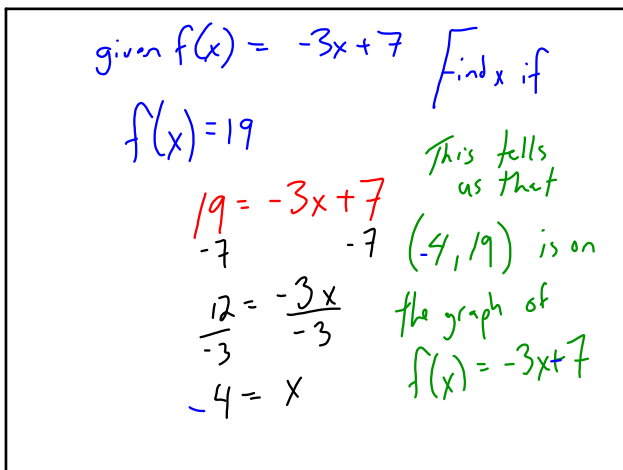 given f(x) = -3x+7 Find x if
f(x)=19
19 = -3x+7
-7 -7
12 = -3x
-3 -3
-4 = x
This tells
us that
(-4, 19) is on
the graph of
f(x) = -3x+7